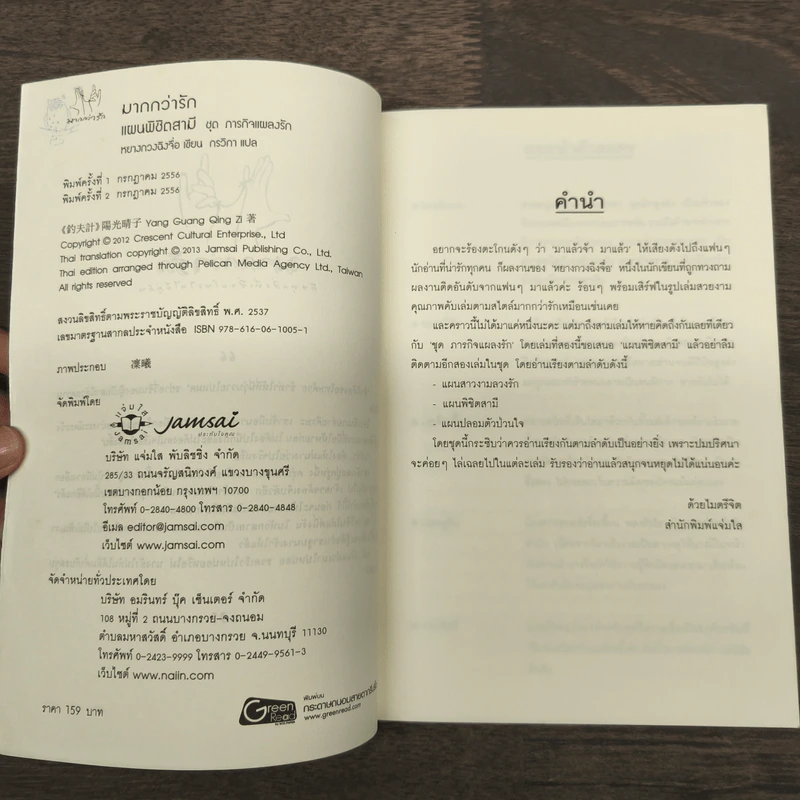 มากกว่ารัก
มากกว่ารัก
แผนพิชิตสามี ชุด ภารกิจแผลงรัก
หยางกวงฉิงจื่อ เขียน กรวิกา แปล
พิมพ์ครั้งที่ 1 กรกฎาคม 2556
พิมพ์ครั้งที่ 2 กรกฎาคม 2556
《釣夫計》陽光晴子 Yang Guang Qing Zi 著
Copyright © 2012 Crescent Cultural Enterprise., Ltd
Thai translation copyright © 2013 Jamsai Publishing Co., Ltd.
Thai edition arranged through Pelican Media Agency Ltd., Taiwan
All rights reserved
สงวนลิขสิทธิ์ตามพระราชบัญญัติลิขสิทธิ์ พ.ศ. 2537
เลขมาตรฐานสากลประจำหนังสือ ISBN 978-616-06-1005-1
ภาพประกอบ 凜曦
จัดพิมพ์โดย
แจ่มใส
Jamsai
Jamsai
ประทับใจคุณ
บริษัท แจ่มใส พับลิชชิ่ง จำกัด
285/33 ถนนจรัญสนิทวงศ์ แขวงบางขุนศรี
เขตบางกอกน้อย กรุงเทพฯ 10700
โทรศัพท์ 0-2840-4800 โทรสาร 0-2840-4848
อีเมล editor@jamsai.com
เว็บไซต์ www.jamsai.com
จัดจำหน่ายทั่วประเทศโดย
บริษัท อมรินทร์ บุ๊ค เซ็นเตอร์ จำกัด
108 หมู่ที่ 2 ถนนบางกรวย-จงถนอม
ตำบลมหาสวัสดิ์ อำเภอบางกรวย จ.นนทบุรี 11130
โทรศัพท์ 0-2423-9999 โทรสาร 0-2449-9561-3
เว็บไซต์ www.naiin.com
ราคา 159 บาท
Green
Read
พิมพ์บน
กระดาษถนอมสายตากรีนรี้ด
www.greenread.com
คำนำ
อยากจะร้องตะโกนดังๆ ว่า 'มาแล้วจ้า มาแล้ว' ให้เสียงดังไปถึงแฟนๆ
นักอ่านที่น่ารักทุกคน ก็ผลงานของ 'หยางกวงฉิงจื่อ' หนึ่งในนักเขียนที่ถูกทวงถาม
ผลงานติดอันดับจากแฟนๆ มาแล้วค่ะ ร้อนๆ พร้อมเสิร์ฟในรูปเล่มสวยงาม
คุณภาพคับเล่มตามสไตล์มากกว่ารักเหมือนเช่นเคย
และคราวนี้ไม่ได้มาแค่หนึ่งนะคะ แต่มาถึงสามเล่มให้หายคิดถึงกันเลยทีเดียว
กับ 'ชุด ภารกิจแผลงรัก' โดยเล่มที่สองนี้ขอเสนอ 'แผนพิชิตสามี' แล้วอย่าลืม
ติดตามอีกสองเล่มในชุด โดยอ่านเรียงตามลำดับดังนี้
- แผนสาวงามลวงรัก
- แผนพิชิตสามี
- แผนปลอมตัวป่วนใจ
โดยชุดนี้กระซิบว่าควรอ่านเรียงกันตามลำดับเป็นอย่างยิ่ง เพราะปมปริศนา
จะค่อยๆ ไล่เฉลยไปในแต่ละเล่ม รับรองว่าอ่านแล้วสนุกจนหยุดไม่ได้แน่นอนค่ะ
ด้วยไมตรีจิต
สำนักพิมพ์แจ่มใส